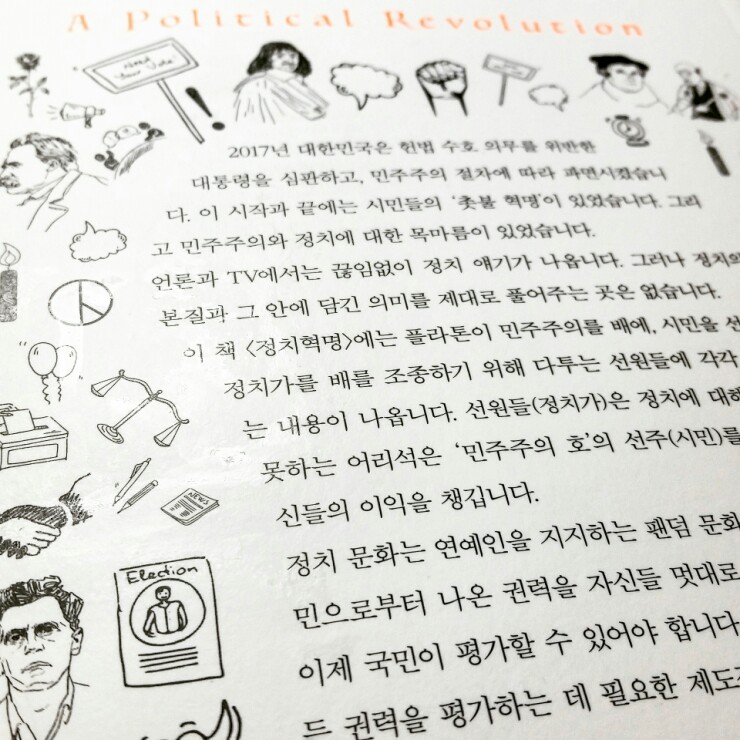 A Political Revolution
Need Your Vote!
2017년 대한민국은 헌법 수호 의무를 위반한
대통령을 심판하고, 민주주의 절차에 따라 파면시켰습니
다. 이 시작과 끝에는 시민들의 '촛불 혁명'이 있었습니다. 그리
고 민주주의와 정치에 대한 목마름이 있었습니다.
언론과 TV에서는 끊임없이 정치 얘기가 나옵니다. 그러나 정치의
본질과 그 안에 담긴 의미를 제대로 풀어주는 곳은 없습니다.
이 책 <정치혁명>에는 플라톤이 민주주의를 배에, 시민을 선
정치가를 배를 조종하기 위해 다투는 선원들에 각각
는 내용이 나옵니다. 선원들(정치가)은 정치에 대해
못하는 어리석은 '민주주의 호'의 선주(시민)를
신들의 이익을 챙깁니다.
NEWS
정치 문화는 연예인을 지지하는 팬덤 문화
Election
민으로부터 나온 권력을 자신들 멋대로
이제 국민이 평가할 수 있어야 합니다
드 권력을 평가하는 데 필요한 제도